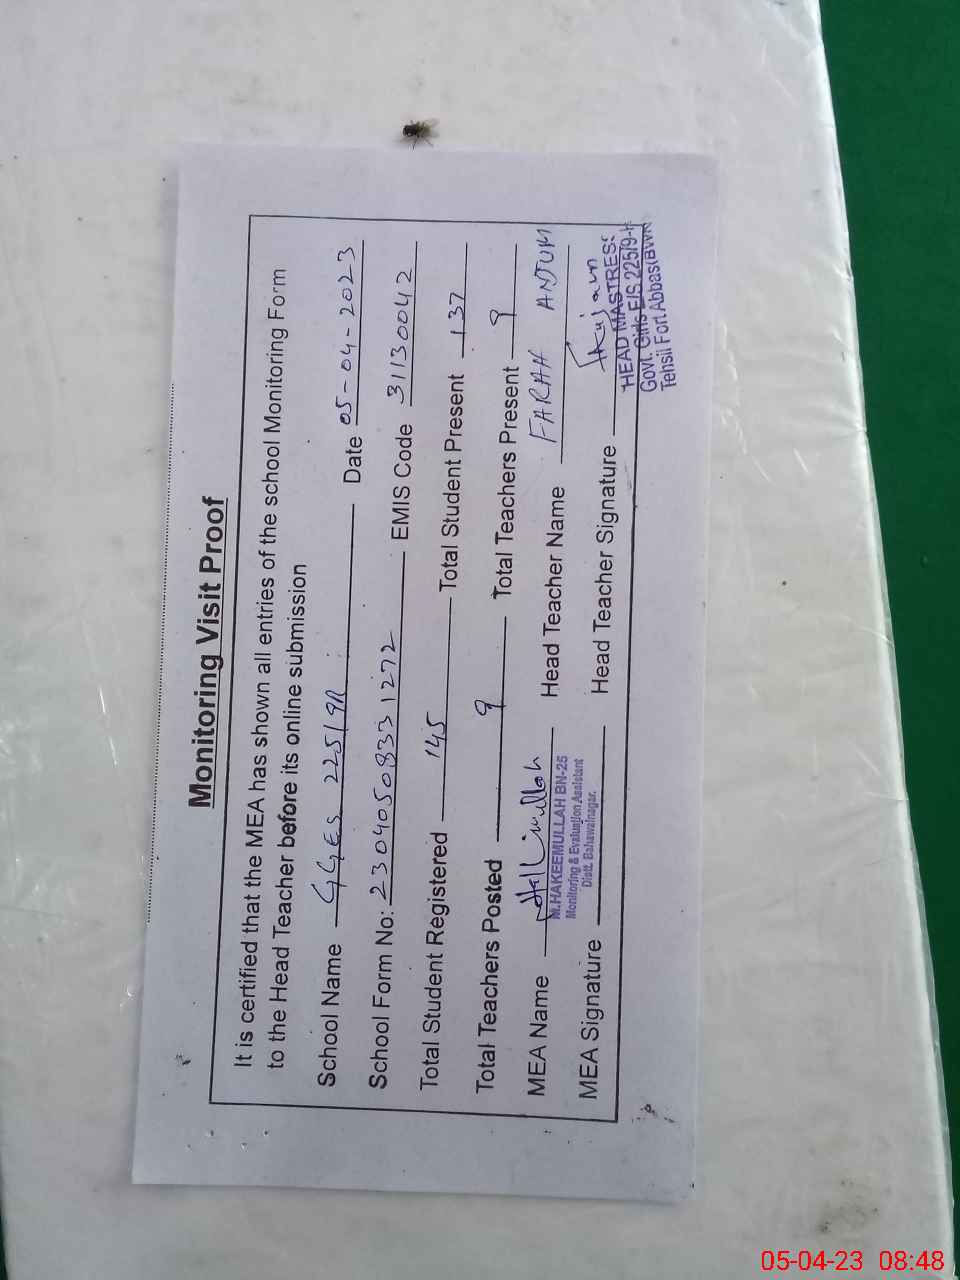 Monitoring Visit Proof
It is certified that the MEA has shown all entries of the school Monitoring Form
to the Head Teacher before its online submission
School Name GGES 225/9R Date 05-04-2023
School Form No: 2304050833 1272 EMIS Code 31130042
Total Student Registered 145 Total Student Present 137
Total Teachers Posted 9 Total Teachers Present 9
MEA Name Head Teacher Name FARAH ANJUM
M.HAKEEMULLAH BN-25
Monitoring & Evaluation Assistant
Distt. Bahawalnagar.
MEA Signature Head Teacher Signature
HEAD MASTRESS
Govt. Girls E/S 225/9-R
Tehsil Fort Abbas(BWN)
05-04-23 08:48